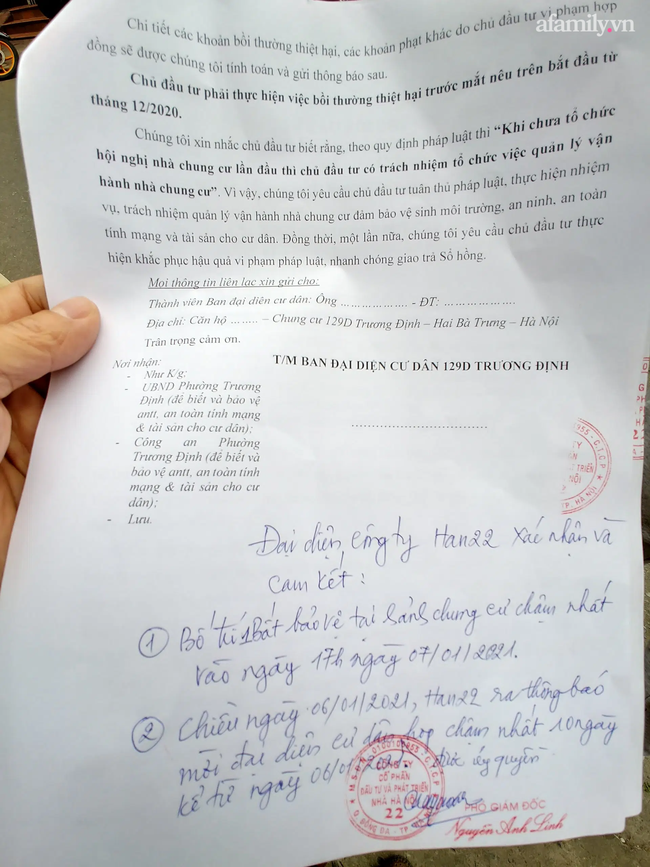 afamily.vn
Chi tiết các khoản bồi thường thiệt hại, các khoản phạt khác do chủ đầu tư vi phạm hợp
đồng sẽ được chúng tôi tính toán và gửi thông báo sau.
Chủ đầu tư phải thực hiện việc bồi thường thiệt hại trước mắt nêu trên bắt đầu từ
tháng 12/2020.
Chúng tôi xin nhắc chủ đầu tư biết rằng, theo quy định pháp luật thì “Khi chưa tổ chức
hội nghị nhà chung cư lần đầu thì chủ đầu tư có trách nhiệm tổ chức việc quản lý vận
hành nhà chung cư”. Vì vậy, chúng tôi yêu cầu chủ đầu tư tuân thủ pháp luật, thực hiện nhiệm
vụ, trách nhiệm quản lý vận hành nhà chung cư đảm bảo vệ sinh môi trường, an ninh, an toàn
tính mạng và tài sản cho cư dân. Đồng thời, một lần nữa, chúng tôi yêu cầu chủ đầu tư thực
hiện khắc phục hậu quả vi phạm pháp luật, nhanh chóng giao trả Sổ hồng.
Mọi thông tin liên lạc xin gửi cho:
Thành viên Ban đại diện cư dân: Ông .................. - ĐT: ..................
Địa chỉ: Căn hộ ........ – Chung cư 129D Trương Định – Hai Bà Trưng – Hà Nội
Trân trọng cảm ơn.
T/M BAN ĐẠI DIỆN CƯ DÂN 129D TRƯƠNG ĐỊNH
Nơi nhận:
- Như K/g;
- UBND Phường Trương
Định (để biết và bảo vệ
antt, an toàn tính mạng
& tài sản cho cư dân);
- Công an Phường
Trương Định (để biết và
bảo vệ antt, an toàn tính
mạng & tài sản cho cư
dân);
- Lưu.
..............................
Đại diện công ty Han22 xác nhận và
cam kết:
① Bố trí 1 bảo vệ tại sảnh chung cư chậm nhất
vào ngày 17h ngày 07/01/2021.
② Chiều ngày 06/01/2021, Han22 ra thông báo
mời đại diện cư dân họp chậm nhất 10 ngày
kể từ ngày 06/01/2021 được ủy quyền
M.S.D.N: 0100100955 - C.T.C.P
CÔNG TY
CỔ PHẦN
ĐẦU TƯ VÀ PHÁT TRIỂN
NHÀ HÀ NỘI
22
Q. ĐỐNG ĐA - TP
PHÓ GIÁM ĐỐC
Nguyễn Anh Linh